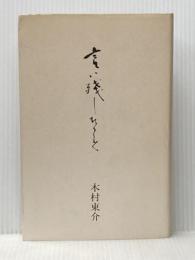 言い残しおくこと
木村東介